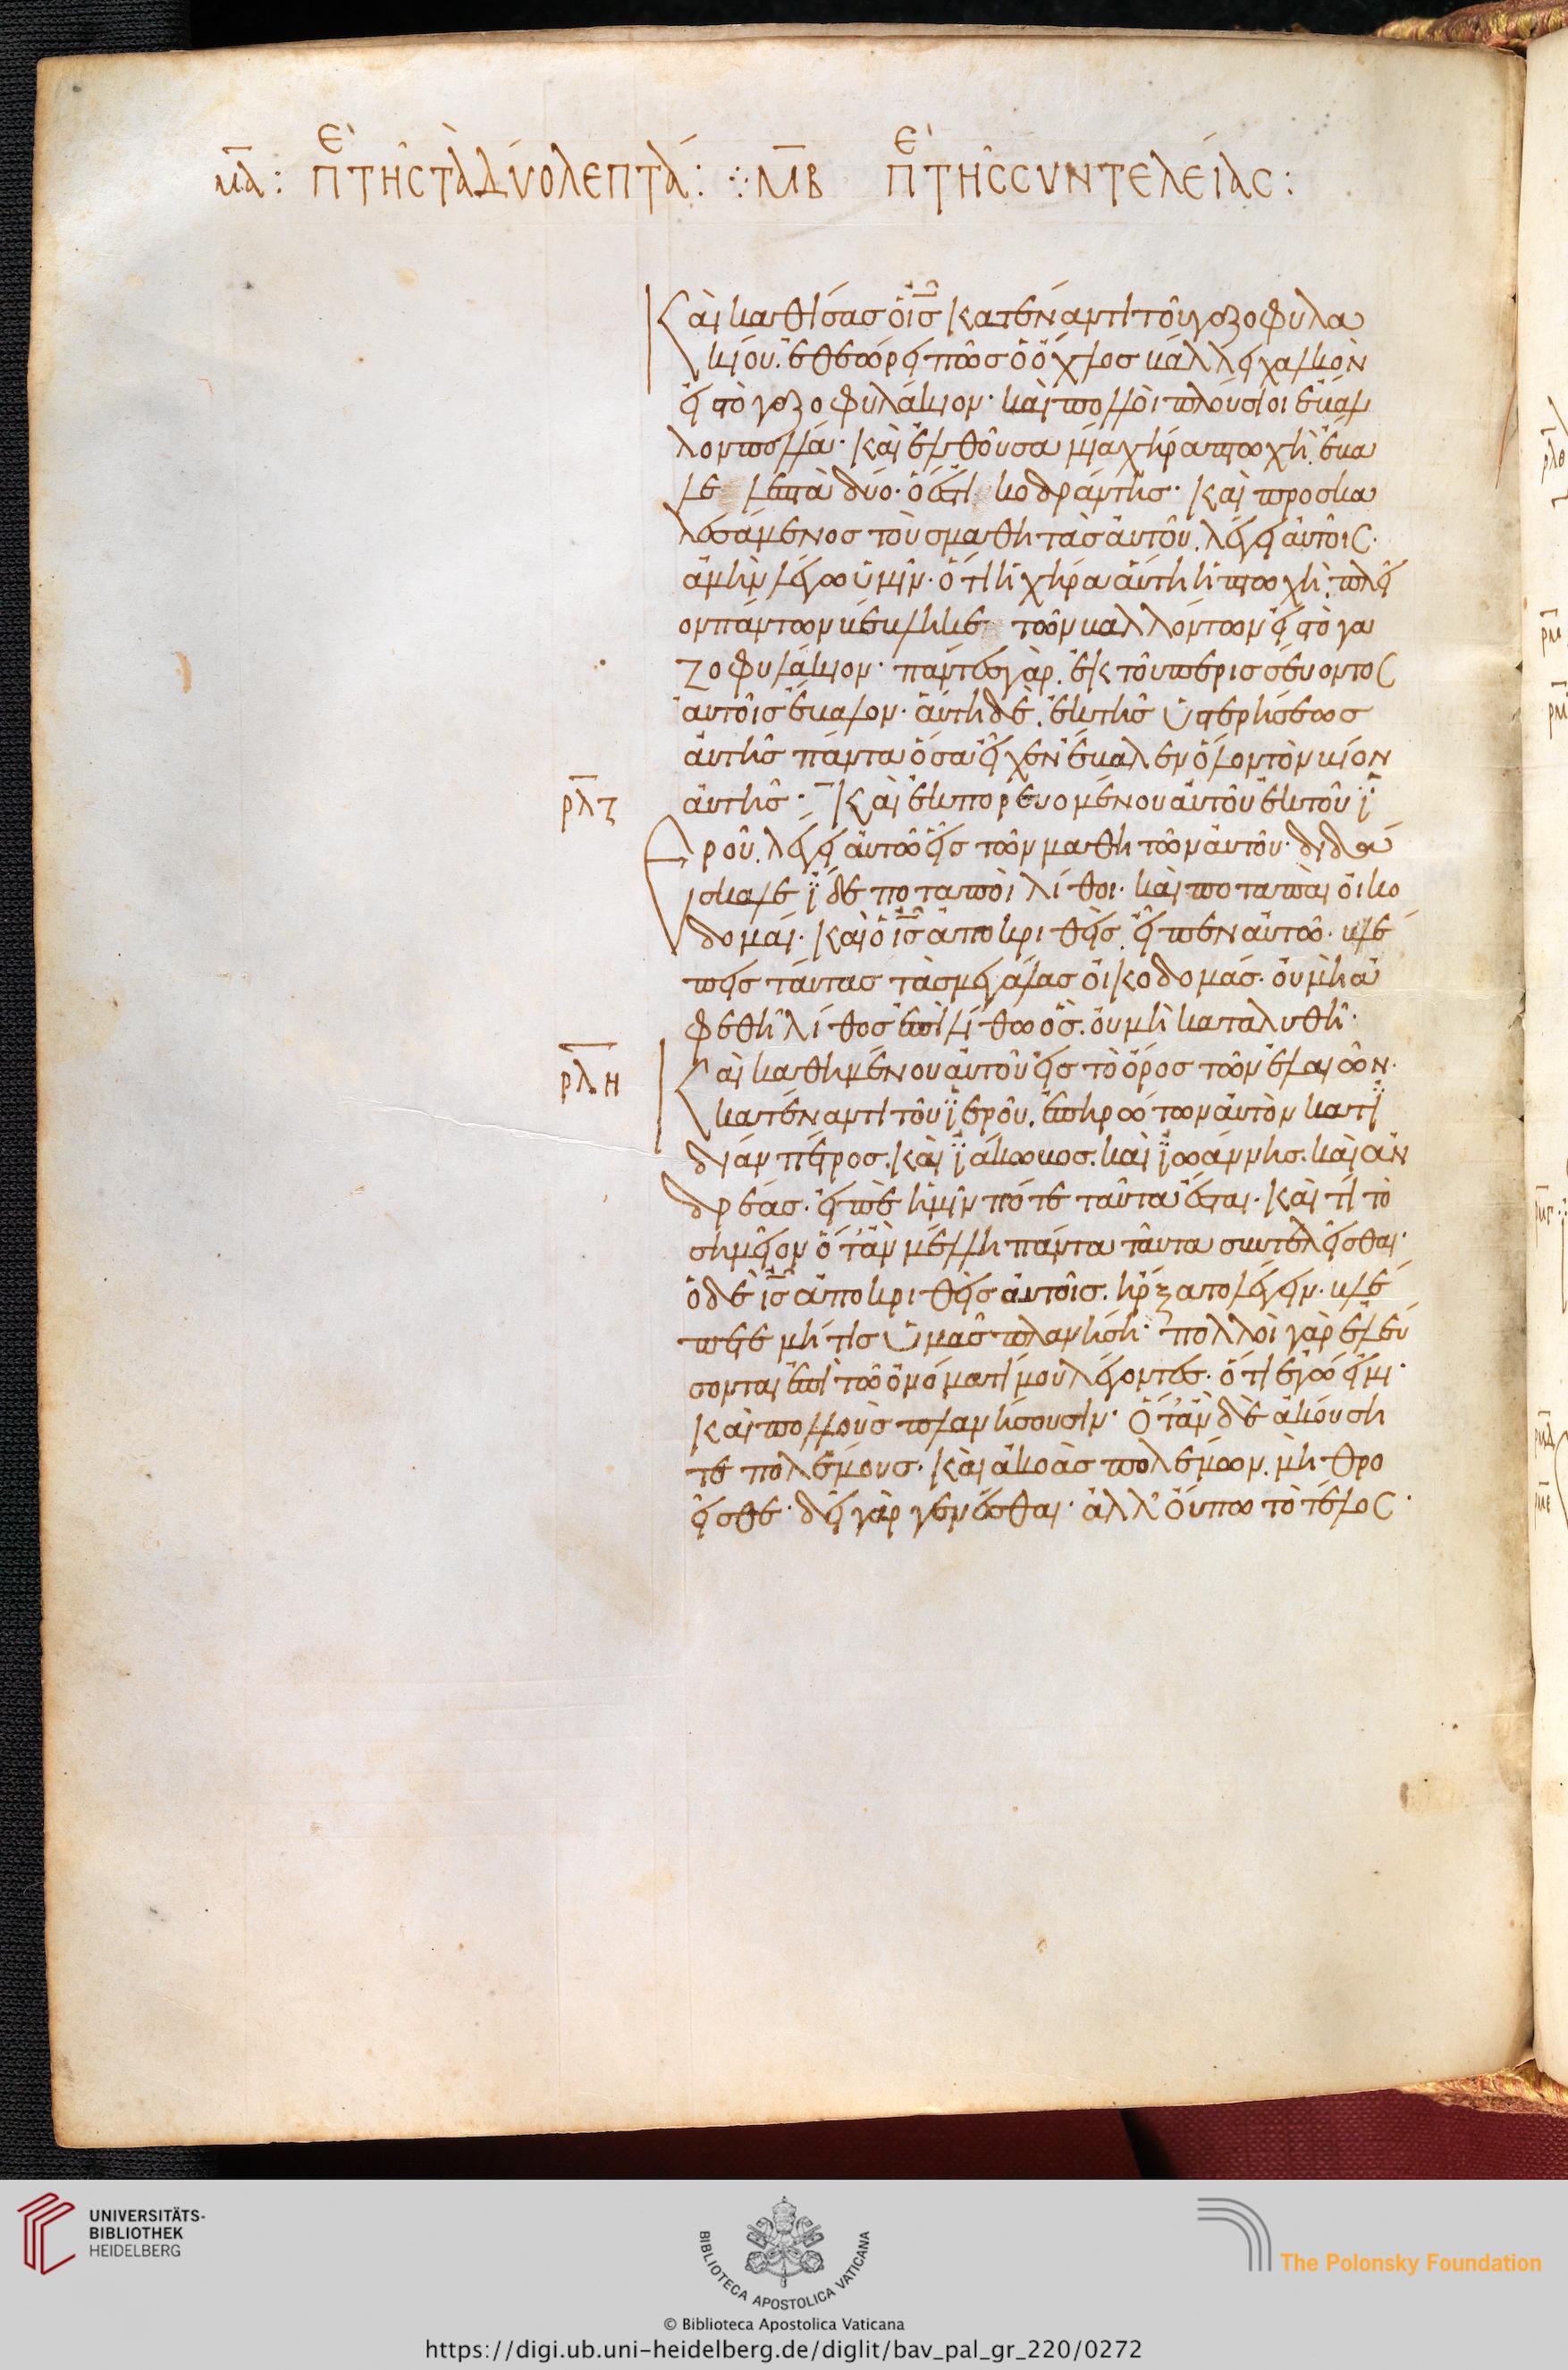 μα: πε τῆς τὰ δύο λεπτά: ⁘ μβ πε τῆς συντελείας:
Καὶ καθίσας ὁ ις κατέναντι τοῦ γαζοφυλα
κίου. ἐθεώρει πῶς ὁ ὄχλος βάλλει χαλκὸν
εἰς τὸ γαζοφυλάκιον· καὶ πολλοὶ πλούσιοι ἔβαλ
λον πολλά· καὶ ἐλθοῦσα μία χήρα πτωχὴ. ἔβα
λε λεπτὰ δύο· ὅ ἐστι κοδράντης· καὶ προσκα
λεσάμενος τοὺς μαθητὰς αὐτοῦ. λέγει αὐτοῖς·
ἀμὴν λέγω ὑμῖν· ὅτι ἡ χήρα αὕτη ἡ πτωχὴ. πλεῖ
ον πάντων βέβληκε τῶν βαλλόντων εἰς τὸ γα
ζοφυλάκιον· πάντες γὰρ. ἐκ τοῦ περισσεύοντος
αὐτοῖς ἔβαλον· αὕτη δὲ. ἐκ τῆς ὑστερήσεως
αὐτῆς πάντα ὅσα εἶχεν ἔβαλεν ὅλον τὸν βίον
ρλζ αὐτῆς· Καὶ ἐκπορευομένου αὐτοῦ ἐκ τοῦ ἱε
ροῦ. λέγει αὐτῶ εἷς τῶν μαθητῶν αὐτοῦ· διδά
σκαλε ἴδε ποταποὶ λίθοι· καὶ ποταπαὶ οἰκο
δομαί· καὶ ὁ ις ἀποκριθεὶς. εἶπεν αὐτῶ· βλέ
πεις ταύτας τὰς μεγάλας οἰκοδομάς· οὐ μὴ ἀ
φεθῆ λίθος ἐπὶ λίθω ὃς. οὐ μὴ καταλυθῆ·
ρλη Καὶ καθημένου αὐτοῦ εἰς τὸ ὄρος τῶν ἐλαιῶν·
κατέναντι τοῦ ἱεροῦ. ἐπηρώτων αὐτὸν κατ ἰ
δίαν πέτρος. καὶ ἰάκωβος. καὶ ἰωάννης. καὶ ἀν
δρέας· εἰπὲ ἡμῖν πότε ταῦτα ἔσται· καὶ τί τὸ
σημεῖον ὅταν μέλλη πάντα ταῦτα συντελεῖσθαι·
ὁ δὲ ις ἀποκριθεὶς αὐτοῖς. ἤρξατο λέγειν· βλέ
πετε μή τις ὑμᾶς πλανήση· πολλοὶ γὰρ ἐλεύ
σονται ἐπὶ τῶ ὀνόματί μου λέγοντες· ὅτι ἐγώ εἰμι·
καὶ πολλοὺς πλανήσουσιν· ὅταν δὲ ἀκούση
τε πολέμους· καὶ ἀκοὰς πολέμων. μὴ θρο
εῖσθε· δεῖ γὰρ γενέσθαι· ἀλλ' οὔπω τὸ τέλος·
UNIVERSITÄTS-
BIBLIOTHEK
HEIDELBERG
BIBLIOTECA APOSTOLICA VATICANA
The Polonsky Foundation
© Biblioteca Apostolica Vaticana
https://digi.ub.uni-heidelberg.de/diglit/bav_pal_gr_220/0272